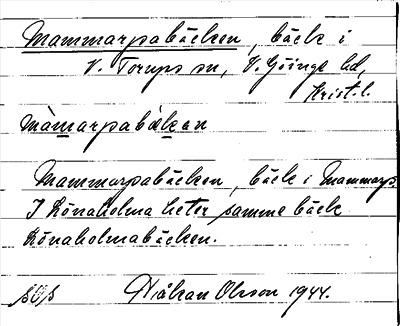 Mammarpabäcken, bäck i
V. Torups sn, V. Göinge hd,
Krist. l.
màmarpabäkan
Mammarpabäcken, bäck i Mammarp.
I Rönaholma heter samma bäck
Rönaholmabäcken.
Håkan Olsson 1944.